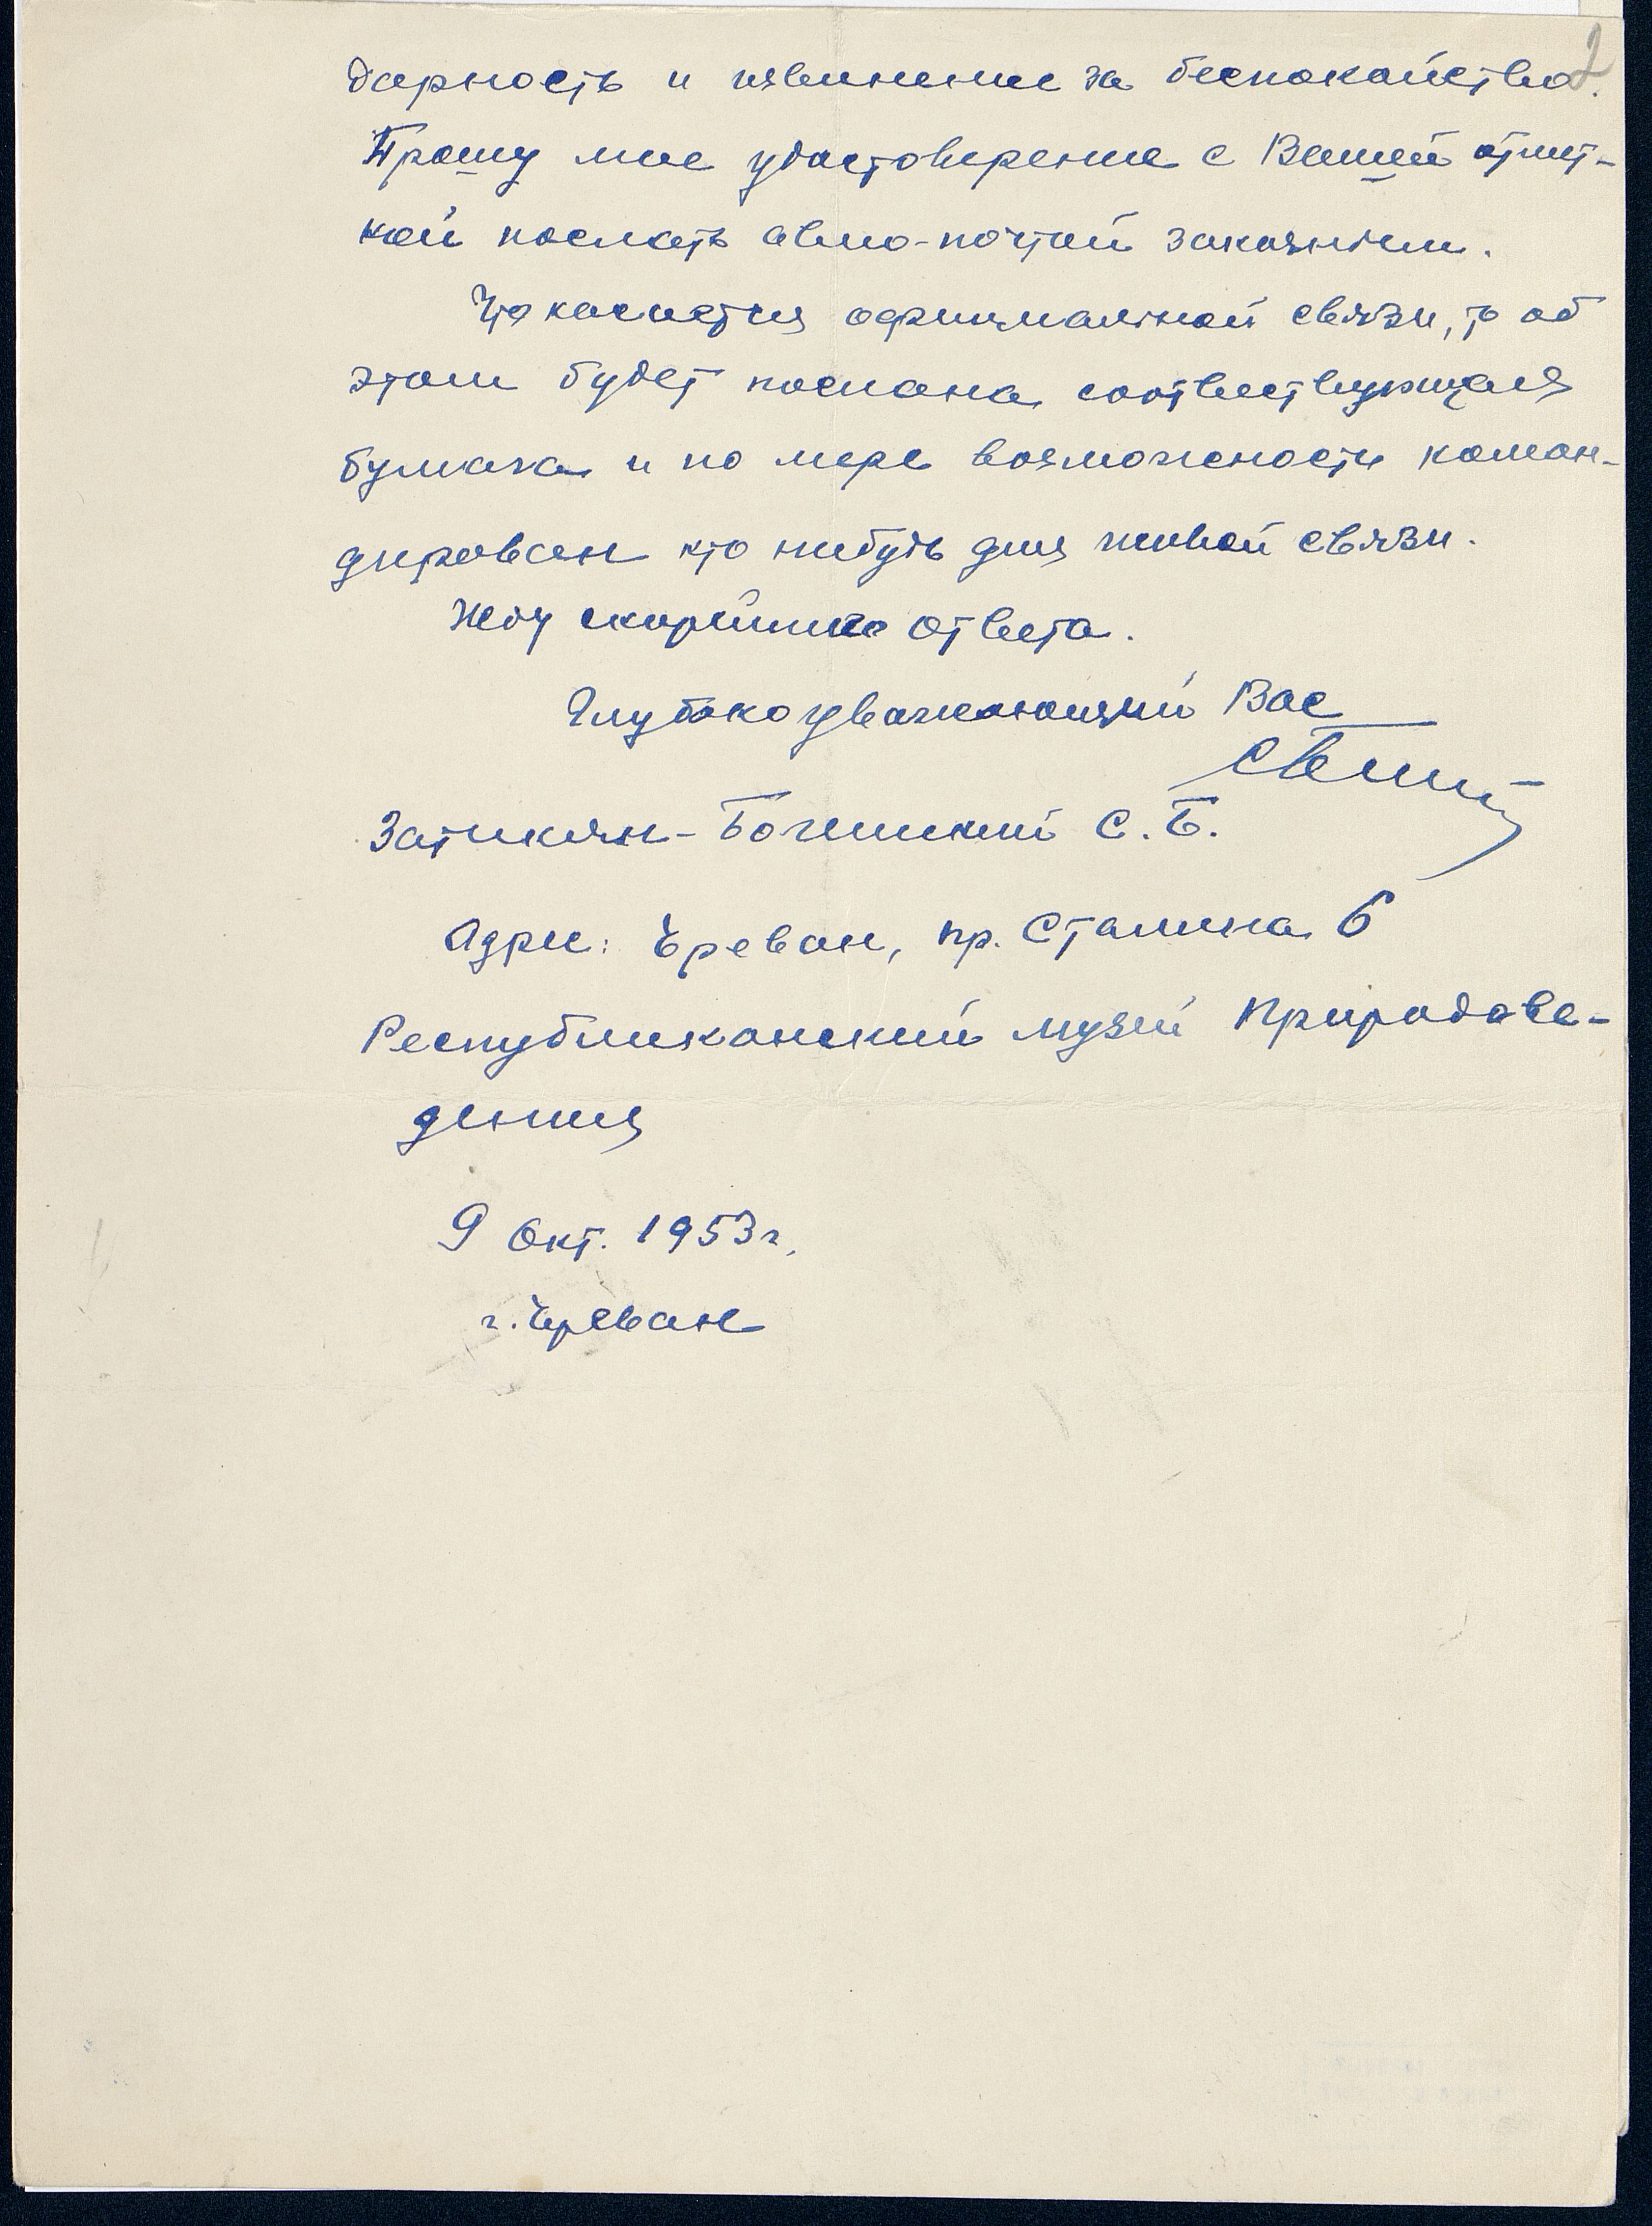 2
дарность и извинение за беспокойство.
Прошу мое удостоверение с Вашей отмет-
кой послать авио-почтой заказным.
Что касается официальной связи, то об
этом будет послана соответствующая
бумага и по мере возможности коман-
дирован кто нибудь для живой связи.
Жду скорейшего ответа.
Глубокоуважающий Вас
Затикян- С. Б.
Адрес: Ереван, пр. Сталина 6
Республиканский музей Природове-
дения
9 Окт. 1953г.
г. Ереван